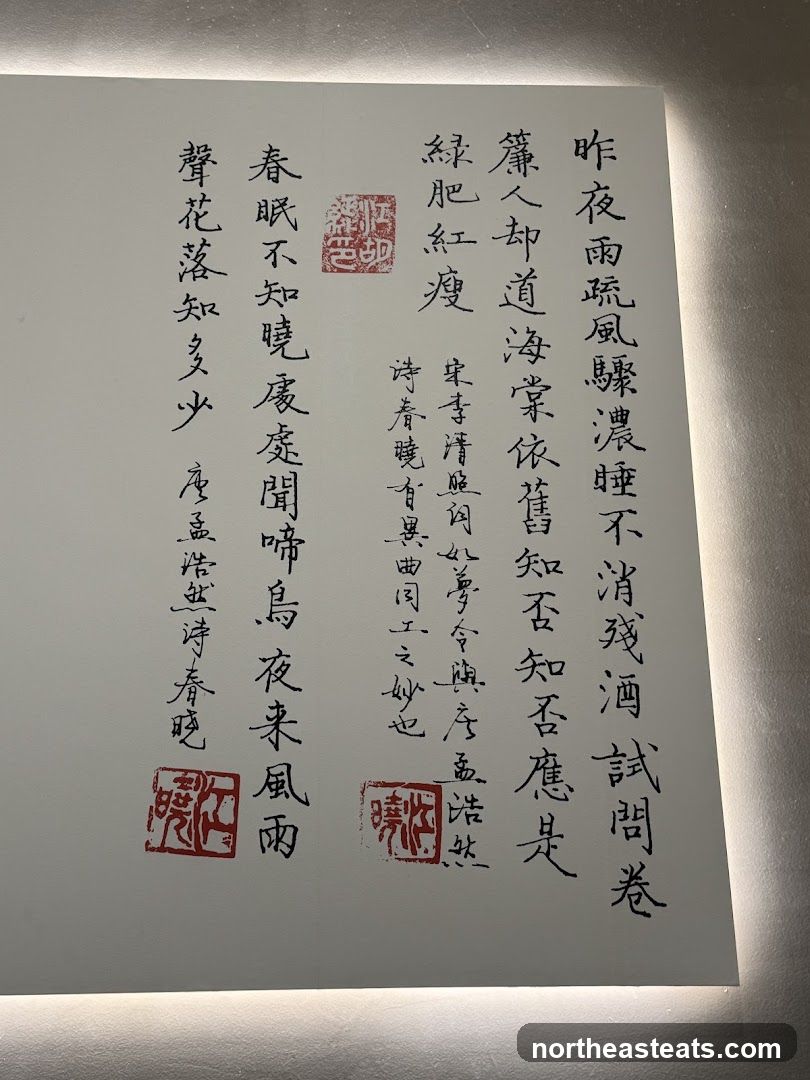 昨夜雨疏風驟濃睡不消殘酒試問卷
簾人却道海棠依舊知否知否應是
緑肥紅瘦
宋李清照詞如夢令與唐孟浩然
诗春曉有異曲同工之妙也
春眠不知曉處處聞啼鳥夜来風雨
聲花落知多少
唐孟浩然诗春曉
江曉
江曉
northeasteats.com